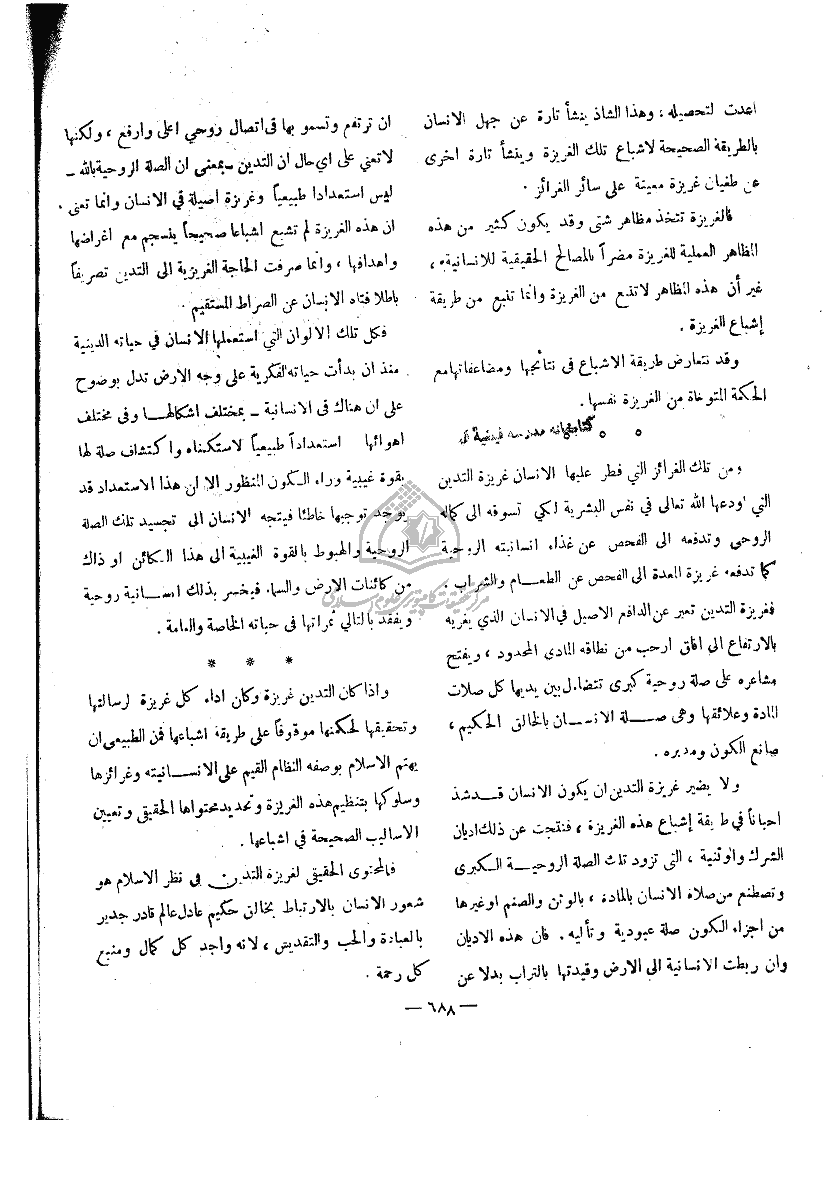 اعدت لتحصيله ، وهذا الشاذ ينشأ تارة عن جهل الانسان
بالطريقة الصحيحة لاشباع تلك الغريزة وينشأ تارة اخرى
عن طغيان غريزة معينة على سائر الغرائز .
فالغريزة تتخذ مظاهر شتى وقد يكون كثير من هذه
المظاهر العملية للغريزة مضراً بالمصالح الحقيقية للانسانية ،
غير أن هذه المظاهر لاتنبع من الغريزة وانما تنبع من طريقة
إشباع الغريزة .
وقد تتعارض طريقة الاشباع فى نتائجها ومضاعفاتها مع
الحكمة المتوخاة من الغريزة نفسها .
كتابخانه مدرسه فيضية
ومن تلك الغرائز التي فطر عليها الانسان غريزة التدين
التي اودعها الله تعالى في نفس البشرية لكي تسوقه الى كماله
الروحي وتدفعه الى الفحص عن غذاء انسانيته الروحية
كما تدفعه غريزة المعدة الى الفحص عن الطعام والشراب .
فغريزة التدين تعبر عن الدافع الاصيل في الانسان الذي يغريه
بالارتفاع الى افاق ارحب من نطاقه المادى المحدود ، ويفتح
مشاعره على صلة روحية كبرى تتضاءل بين يديها كل صلات
المادة وعلائقها وهى صلة الانسان بالخالق الحكيم ،
صانع الكون ومدبره .
ولا يضير غريزة التدين ان يكون الانسان قد شذ
احياناً في طريقة إشباع هذه الغريزة ، فنتجت عن ذلك اديان
الشرك والوثنية ، التى تزود تلك الصلة الروحية الكبرى
وتصطنع من صلاة الانسان بالمادة ، بالوثن والصنم او غيرها
من اجزاء الكون صلة عبودية وتأليه . فان هذه الاديان
وان ربطت الانسانية الى الارض وقيدتها بالتراب بدلا عن
ان ترتفع وتسمو بها فى اتصال روحي اعلى وارفع ، ولكنها
لاتعني على اي حال ان التدين ـ بمعنى ان الصلة الروحية بالله ـ
ليس استعدادا طبيعياً وغريزة اصيلة في الانسان وانما تعنى .
ان هذه الغريزة لم تشبع اشباعا صحيحاً ينسجم مع اغراضها
واهدافها ، وانما صرفت الحاجة الغريزية الى التدين تصريفاً
باطلا فتاه الانسان عن الصراط المستقيم .
فكل تلك الالوان التي استعملها الانسان في حياته الدينية
منذ ان بدأت حياته الفكرية على وجه الارض تدل بوضوح
على ان هناك فى الانسانية ـ بمختلف اشكالها وفى مختلف
اهوائها استعداداً طبيعياً لاستكناه واكتشاف صلة لها
بقوة غيبية وراء الكون المنظور الا ان هذا الاستعداد قد
يوجد توجيها خاطئا فيتجه الانسان الى تجسيد تلك الصلة
الروحية والهبوط بالقوة الغيبية الى هذا الكائن او ذاك
من كائنات الارض والسماء فيخسر بذلك انسانية روحية
ويفقد بالتالي ثمراتها فى حياته الخاصة والعامة .
* * *
واذا كان التدين غريزة وكان اداء كل غريزة لرسالتها
وتحقيقها لحكمتها موقوفاً على طريقة اشباعها فمن الطبيعي ان
يهتم الاسلام بوصفه النظام القيم على الانسانيته وغرائزها
وسلوكها بتنظيم هذه الغريزة وتحديد محتواها الحقيقى وتعيين
الاساليب الصحيحة في اشباعها .
فالمحتوى الحقيقى لغريزة التدين في نظر الاسلام هو
شعور الانسان بالارتباط بخالق حكيم عادل عالم قادر جدير
بالعبادة والحب والتقديس ، لانه واجد كل كمال ومنبع
كل رحمة .
— ٦٨٨ —